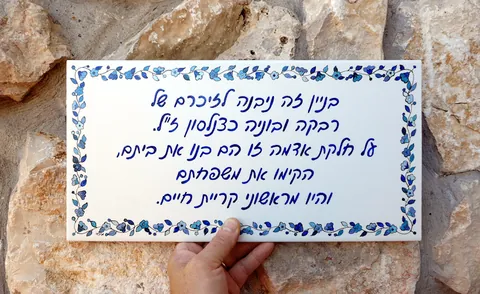 בניין זה ניבנה לזיכרם של
רבקה ובוניה כצנלסון ז״ל.
על חלקת אדמה זו הם בנו את ביתם,
הקימו את משפחתם
והיו מראשוני קריית חיים.